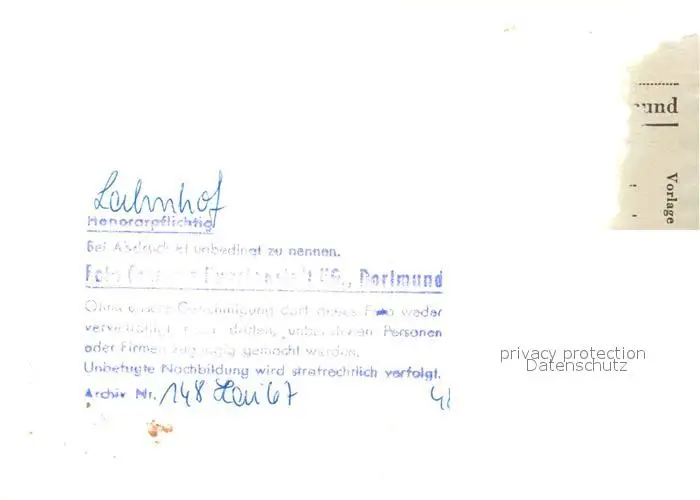 Lahnhof
Honorarpflichtig
Bei Abdruck ist unbedingt zu nennen.
Foto Dortmund
Ohne unsere Genehmigung darf dieses Foto weder
vervielfältigt noch dritten, unberufenen Personen
oder Firmen zugängig gemacht werden.
Unbefugte Nachbildung wird strafrechtlich verfolgt.
Archiv Nr. 148 67
und
Vorlage
privacy protection
Datenschutz